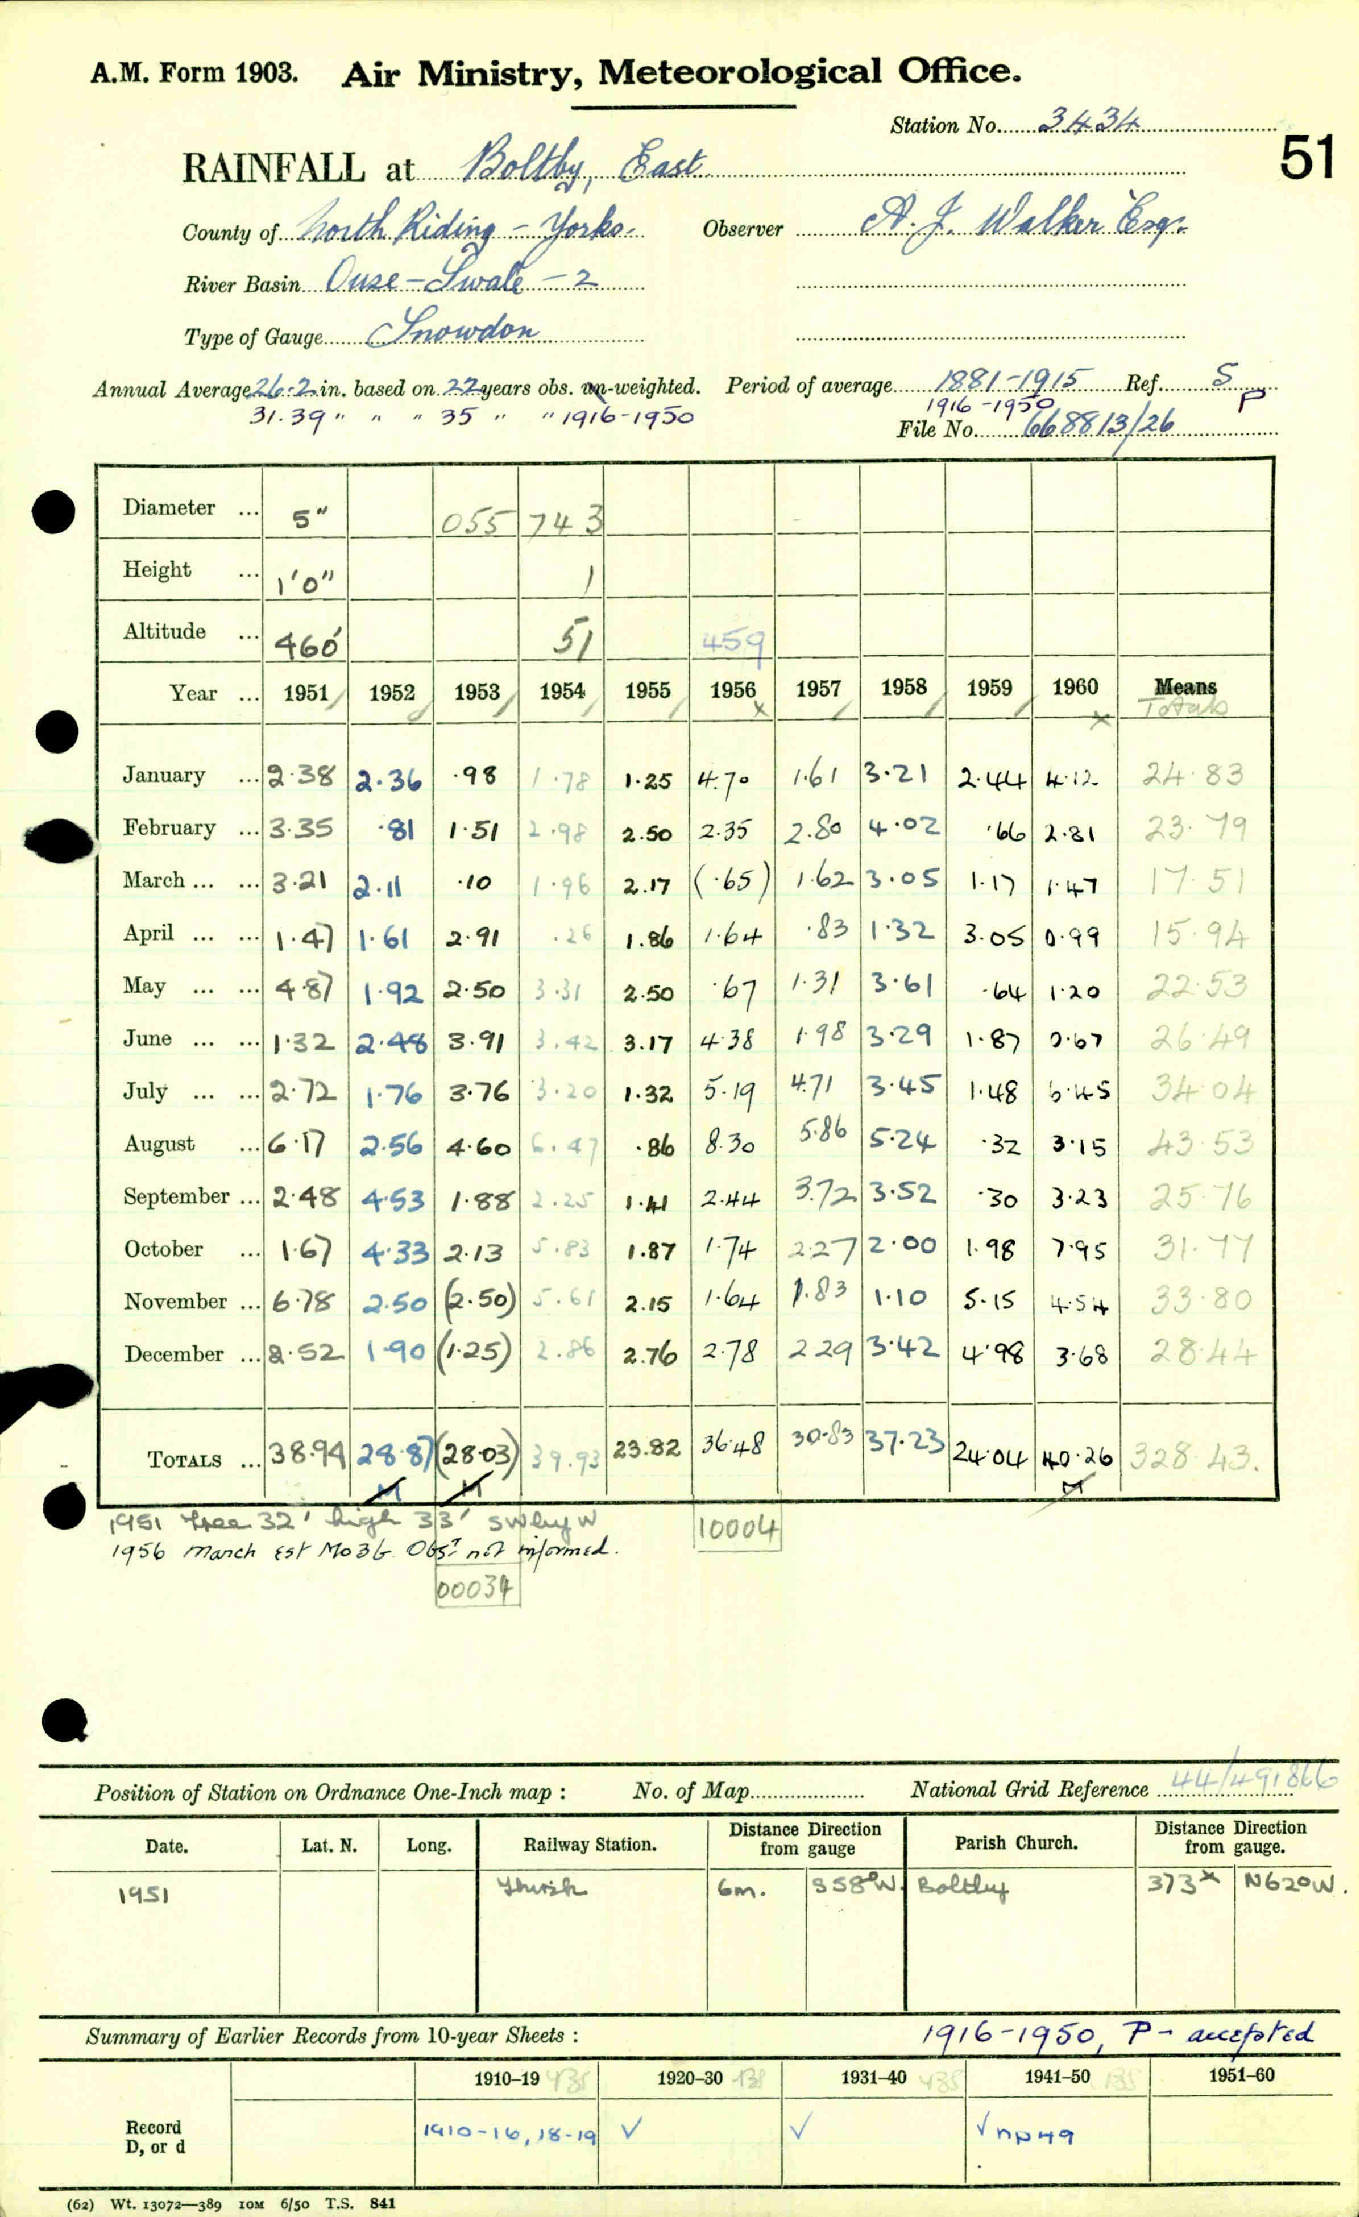 A.M. Form 1903. Air Ministry, Meteorological Office.
Station No. 3434
51
RAINFALL at Boltby, East
County of North Riding - Yorks. Observer A. J. Walker Esq.
River Basin Ouse - Swale - 2
Type of Gauge Snowdon
Annual Average 26.2 in. based on 22 years obs. un-weighted. Period of average 1881-1915 Ref. S
31.39 " " " 35 " " 1916-1950 1916-1950 P
File No. 668813/26
Diameter ... 5" 055 743
Height ... 1'0" 1
Altitude ... 460' 51 459
Year ... 1951 1952 1953 1954 1955 1956 1957 1958 1959 1960 Means
x x Totals
January ... 2.38 2.36 .98 1.78 1.25 4.70 1.61 3.21 2.44 4.12 24.83
February ... 3.35 .81 1.51 2.98 2.50 2.35 2.80 4.02 .66 2.81 23.79
March ... ... 3.21 2.11 .10 1.96 2.17 (.65) 1.62 3.05 1.17 1.47 17.51
April ... ... 1.47 1.61 2.91 .26 1.86 1.64 .83 1.32 3.05 0.99 15.94
May ... ... 4.87 1.92 2.50 3.31 2.50 .67 1.31 3.61 .64 1.20 22.53
June ... ... 1.32 2.48 3.91 3.42 3.17 4.38 1.98 3.29 1.87 0.67 26.49
July ... ... 2.72 1.76 3.76 3.20 1.32 5.19 4.71 3.45 1.48 6.45 34.04
August ... 6.17 2.56 4.60 6.47 .86 8.30 5.86 5.24 .32 3.15 43.53
September ... 2.48 4.53 1.88 2.25 1.41 2.44 3.72 3.52 .30 3.23 25.76
October ... 1.67 4.33 2.13 5.83 1.87 1.74 2.27 2.00 1.98 7.95 31.77
November ... 6.78 2.50 (2.50) 5.61 2.15 1.64 1.83 1.10 5.15 4.54 33.80
December ... 2.52 1.90 (1.25) 2.86 2.76 2.78 2.29 3.42 4.98 3.68 28.44
TOTALS ... 38.94 28.87 (28.03) 39.93 23.82 36.48 30.83 37.23 24.04 40.26 328.43.
M M M
1951 Tree 32' high 33' SW by W 10004
1956 March est Mo3b. Obsr. not informed.
00034
Position of Station on Ordnance One-Inch map : No. of Map National Grid Reference 44/491866
Date. Lat. N. Long. Railway Station. Distance Direction from gauge Parish Church. Distance Direction from gauge.
1951 Thirsk 6m. S58°W. Boltby 373x N62°W.
Summary of Earlier Records from 10-year Sheets : 1916-1950, P - accepted
1910–19 1920–30 1931–40 1941–50 1951–60
Record
D, or d
1910-16, 18-19 √ √ √ np49
(62) Wt. 13072—389 10M 6/50 T.S. 841